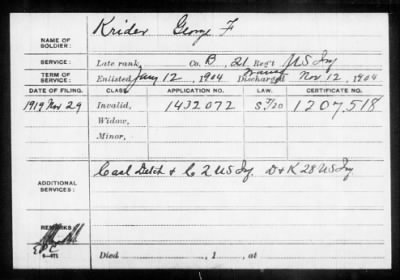 NAME OF SOLDIER: Krider George F
SERVICE: Late rank, Co. B, 21 Reg't US Inf
TERM OF SERVICE: Enlisted Jany 12, 1904 Discharged Nov 12, 1904
DATE OF FILING. CLASS. APPLICATION NO. LAW. CERTIFICATE NO.
1919 Nov 29 Invalid, 1432072 1207518
Widow,
Minor,
ADDITIONAL SERVICES: Casl Detch & C 2 US Inf. D & K 28 US Inf
REMARKS
Died , 1 , at